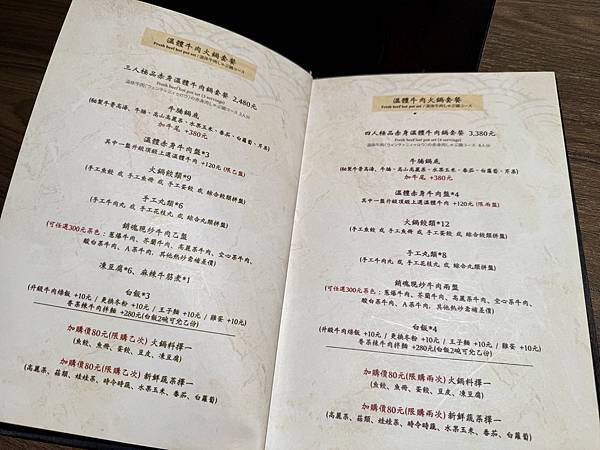 溫體牛肉火鍋套餐
Fresh beef hot pot set / 溫体牛肉しゃぶ鍋コース
三人極品赤身溫體牛肉鍋套餐 2,480元
Fresh beef hot pot set (3 servings)
牛腩鍋底
(秘製牛骨高湯、牛腩、高山高麗菜、水果玉米、番茄、白蘿蔔、芹菜)
加牛尾 +380元
溫體赤身牛肉盤*3
其中一盤升級頂級上選溫體牛肉 +120元 (限乙盤)
火鍋餃類*9
(手工魚餃 或 手工魚冊 或 手工蛋餃 或 綜合餃類拼盤)
手工丸類*6
(手工牛肉丸 或 手工花枝丸 或 綜合丸類拼盤)
銷魂現炒牛肉乙盤
(可任選300元菜色:蔥爆牛肉、芥蘭牛肉、高麗菜牛肉、空心菜牛肉、
酸白菜牛肉、A菜牛肉、其他熱炒需補差價)
凍豆腐*6、麻辣牛筋煮*1
白飯*3
(升級牛肉燥飯 +10元 / 更換冬粉 +10元 / 王子麵 +10元 / 雞蛋 +10元)
香菜辣牛肉拌麵 +280元(白飯2碗可兌乙份)
加購價80元(限購乙次) 火鍋料擇一
(魚餃、魚冊、蛋餃、豆皮、凍豆腐)
加購價80元(限購乙次) 新鮮蔬菜擇一
(高麗菜、菇類、娃娃菜、時令時蔬、水果玉米、番茄、白蘿蔔)
溫體牛肉火鍋套餐
Fresh beef hot pot set / 溫体牛肉しゃぶ鍋コース
四人極品赤身溫體牛肉鍋套餐 3,380元
Fresh beef hot pot set (4 servings)
牛腩鍋底
(秘製牛骨高湯、牛腩、高山高麗菜、水果玉米、番茄、白蘿蔔、芹菜)
加牛尾 +380元
溫體赤身牛肉盤*4
其中一盤升級頂級上選溫體牛肉 +120元 (限兩盤)
火鍋餃類*12
(手工魚餃 或 手工魚冊 或 手工蛋餃 或 綜合餃類拼盤)
手工丸類*8
(手工牛肉丸 或 手工花枝丸 或 綜合丸類拼盤)
銷魂現炒牛肉兩盤
(可任選300元菜色:蔥爆牛肉、芥蘭牛肉、高麗菜牛肉、空心菜牛肉、
酸白菜牛肉、A菜牛肉、其他熱炒需補差價)
白飯*4
(升級牛肉燥飯 +10元 / 更換冬粉 +10元 / 王子麵 +10元 / 雞蛋 +10元)
香菜辣牛肉拌麵 +280元(白飯2碗可兌乙份)
加購價80元(限購兩次) 火鍋料擇一
(魚餃、魚冊、蛋餃、豆皮、凍豆腐)
加購價80元(限購兩次) 新鮮蔬菜擇一
(高麗菜、菇類、娃娃菜、時令時蔬、水果玉米、番茄、白蘿蔔)